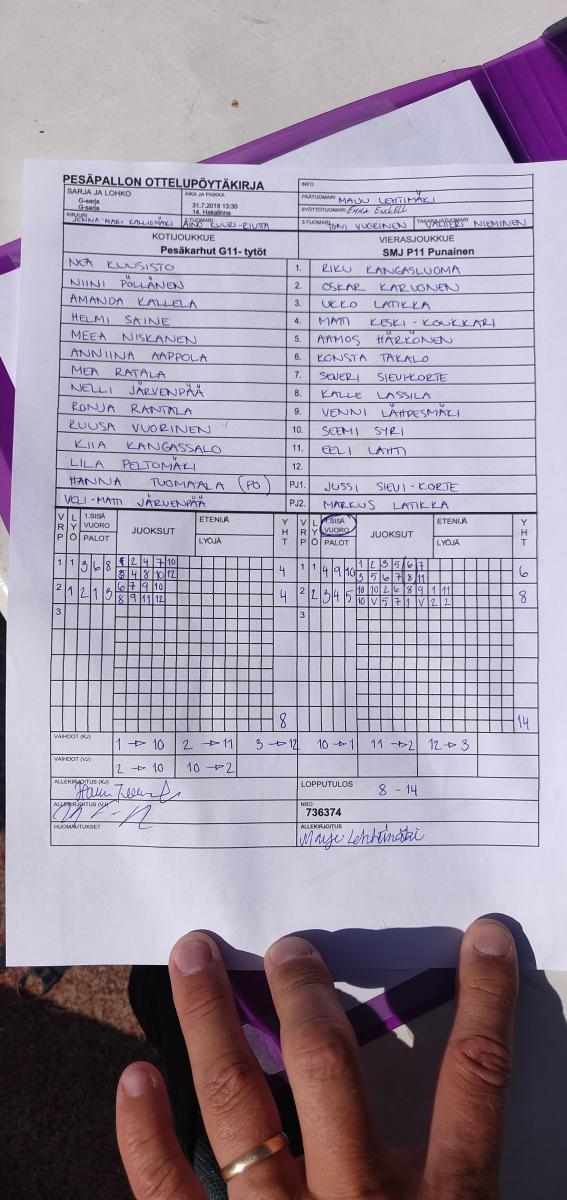 PESÄPALLON OTTELUPÖYTÄKIRJA
INFO
SARJA JA LOHKO
G-sarja
G-sarja
AIKA JA PAIKKA
31.7.2019 13:30
14, Hakalinna
PÄÄTUOMARI
LEHTIMÄKI
SYÖTTÖTUOMARI EMMA
KIRJURI JENNA-MARI KALLIOMÄKI
2-TUOMARI AINO RUURI-RIUTTA
3-TUOMARI TONI VUORINEN
TAKARAJATUOMARI VALTTERI NIEMINEN
KOTIJOUKKUE
Pesäkarhut G11- tytöt
VIERASJOUKKUE
SMJ P11 Punainen
NEA KUUSISTO 1. RIKU KANGASLUOMA
NIINI PÖLLÄNEN 2. OSKAR KARVONEN
AMANDA KALLELA 3. UKKO LATIKKA
HELMI SAINE 4. MATTI KESKI-KOUKKARI
MEEA NISKANEN 5. AAMOS HÄRKÖNEN
ANNIINA AAPPOLA 6. KONSTA TAKALO
MEA RATALA 7. SEVERI SIEVI-KORTE
NELLI JÄRVENPÄÄ 8. KALLE LASSILA
RONJA RANTALA 9. VENNI LÄHDESMÄKI
RUUSA VUORINEN 10. SEEMI SYRI
KIIA KANGASSALO 11. EELI LAHTI
LILA PELTOMÄKI 12.
HANNA TUOMAALA (PO) PJ1. JUSSI SIEVI-KORTE
VELI-MATTI JÄRVENPÄÄ PJ2. MARKUS LATIKKA
VRP LYÖ 1.SISÄ VUORO PALOT JUOKSUT ETENIJÄ LYÖJÄ YHT VRP LYÖ 1.SISÄ VUORO PALOT JUOKSUT ETENIJÄ LYÖJÄ YHT
1 1 3 6 8 2 4 7 10 4 1 1 4 9 10 1 2 3 5 6 7 6
4 8 10 12 3 5 6 7 8 11
2 1 2 1 3 6 7 9 10 4 2 2 3 4 5 10 10 2 6 8 9 1 11 8
8 9 11 12 10 V 5 7 1 V 2 2
3 3
8 14
VAIHDOT (KJ) 1 → 10 2 → 11 3 → 12 10 → 1 11 → 2 12 → 3
VAIHDOT (VJ) 2 → 10 10 → 2
ALLEKIRJOITUS (KJ)
LOPPUTULOS 8 - 14
ALLEKIRJOITUS (VJ)
NRO
736374
HUOMAUTUKSET
ALLEKIRJOITUS
Lehtimäki